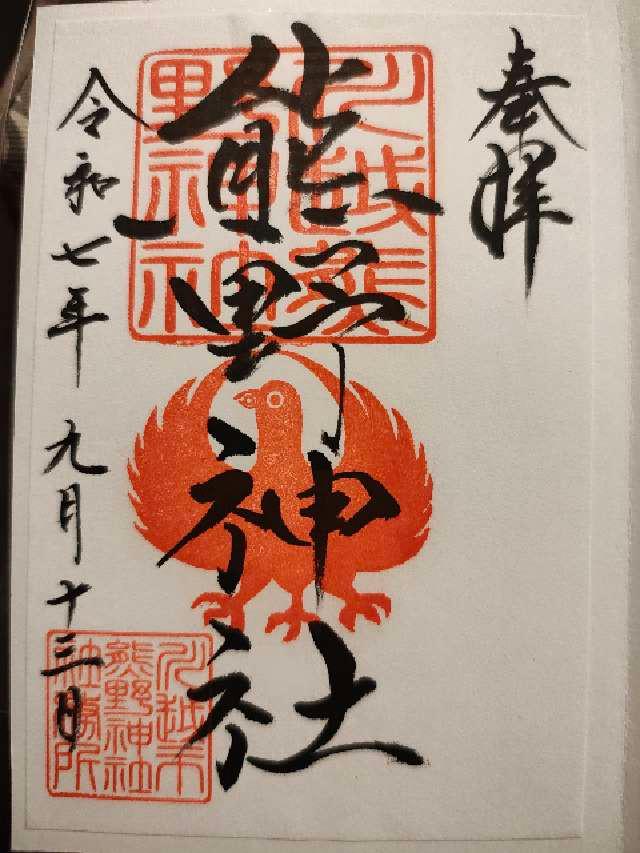 奉拝
熊野神社
令和七年九月十三日
川越熊
野神社
川越市
熊野神社
社務所